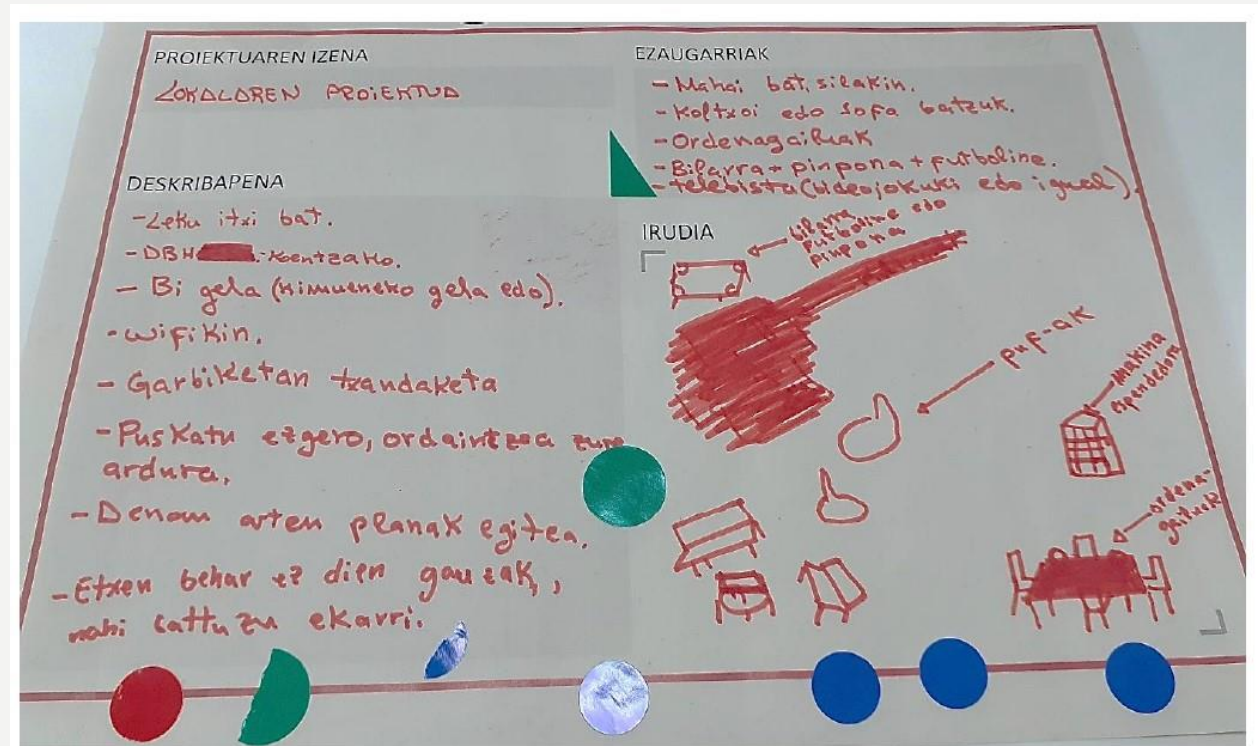 PROIEKTUAREN IZENA
LOKALAREN PROIEKTUA
DESKRIBAPENA
- Leku itxi bat.
- DBH -koentzako.
- Bi gela (kimueneko gela edo).
- Wifikin.
- Garbiketan txandaketa
- Puskatu ezgero, ordaintzea zure
ardura.
- Denom arten planak egitea.
- Etxen behar ez dien gauzak,
nahi ekarri.
EZAUGARRIAK
- Mahai bat, silakin.
- Koltxoi edo sofa batzuk.
- Ordenagailuak
- Billarra + pinpona + futboline.
- telebista (bideojokuki edo igual).
IRUDIA
billarra
futboline edo
pinpona
puf-ak
makina
espendedora
ordena-
gailuak